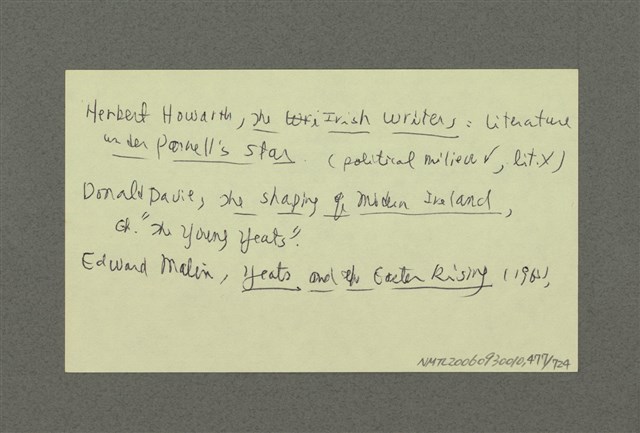 Herbert Howarth, The Irish Writers, : Literature
under Parnell's Star. (political milieu ✓, lit. X)
Donald Davie, The Shaping of Modern Ireland,
Ch. "The Young Yeats".
Edward Malin, Yeats and the Easter Rising (196),
NMTL20060930010,477/724